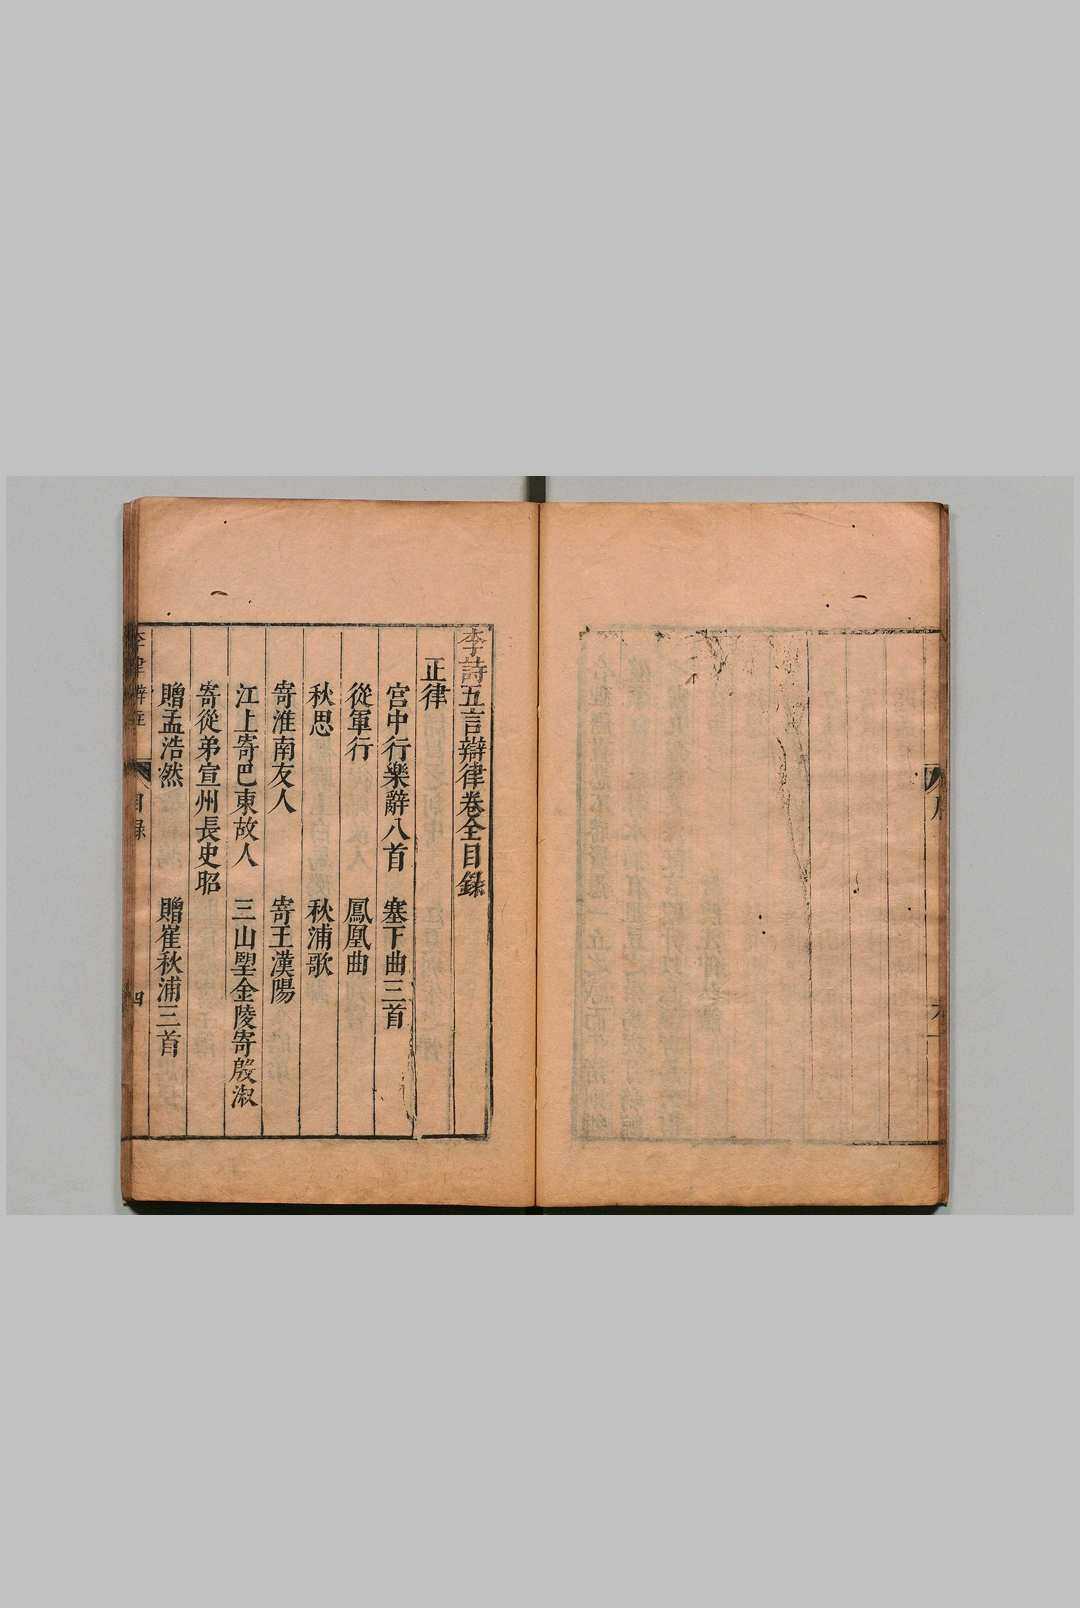 李詩五言辯律卷全目錄
正律
宮中行樂辭八首　塞下曲三首
從軍行　鳳凰曲
秋思　秋浦歌
寄淮南友人　寄王漢陽
江上寄巴東故人　三山望金陵寄殷淑
寄從弟宣州長史昭
贈孟浩然　贈崔秋浦三首
目錄
四